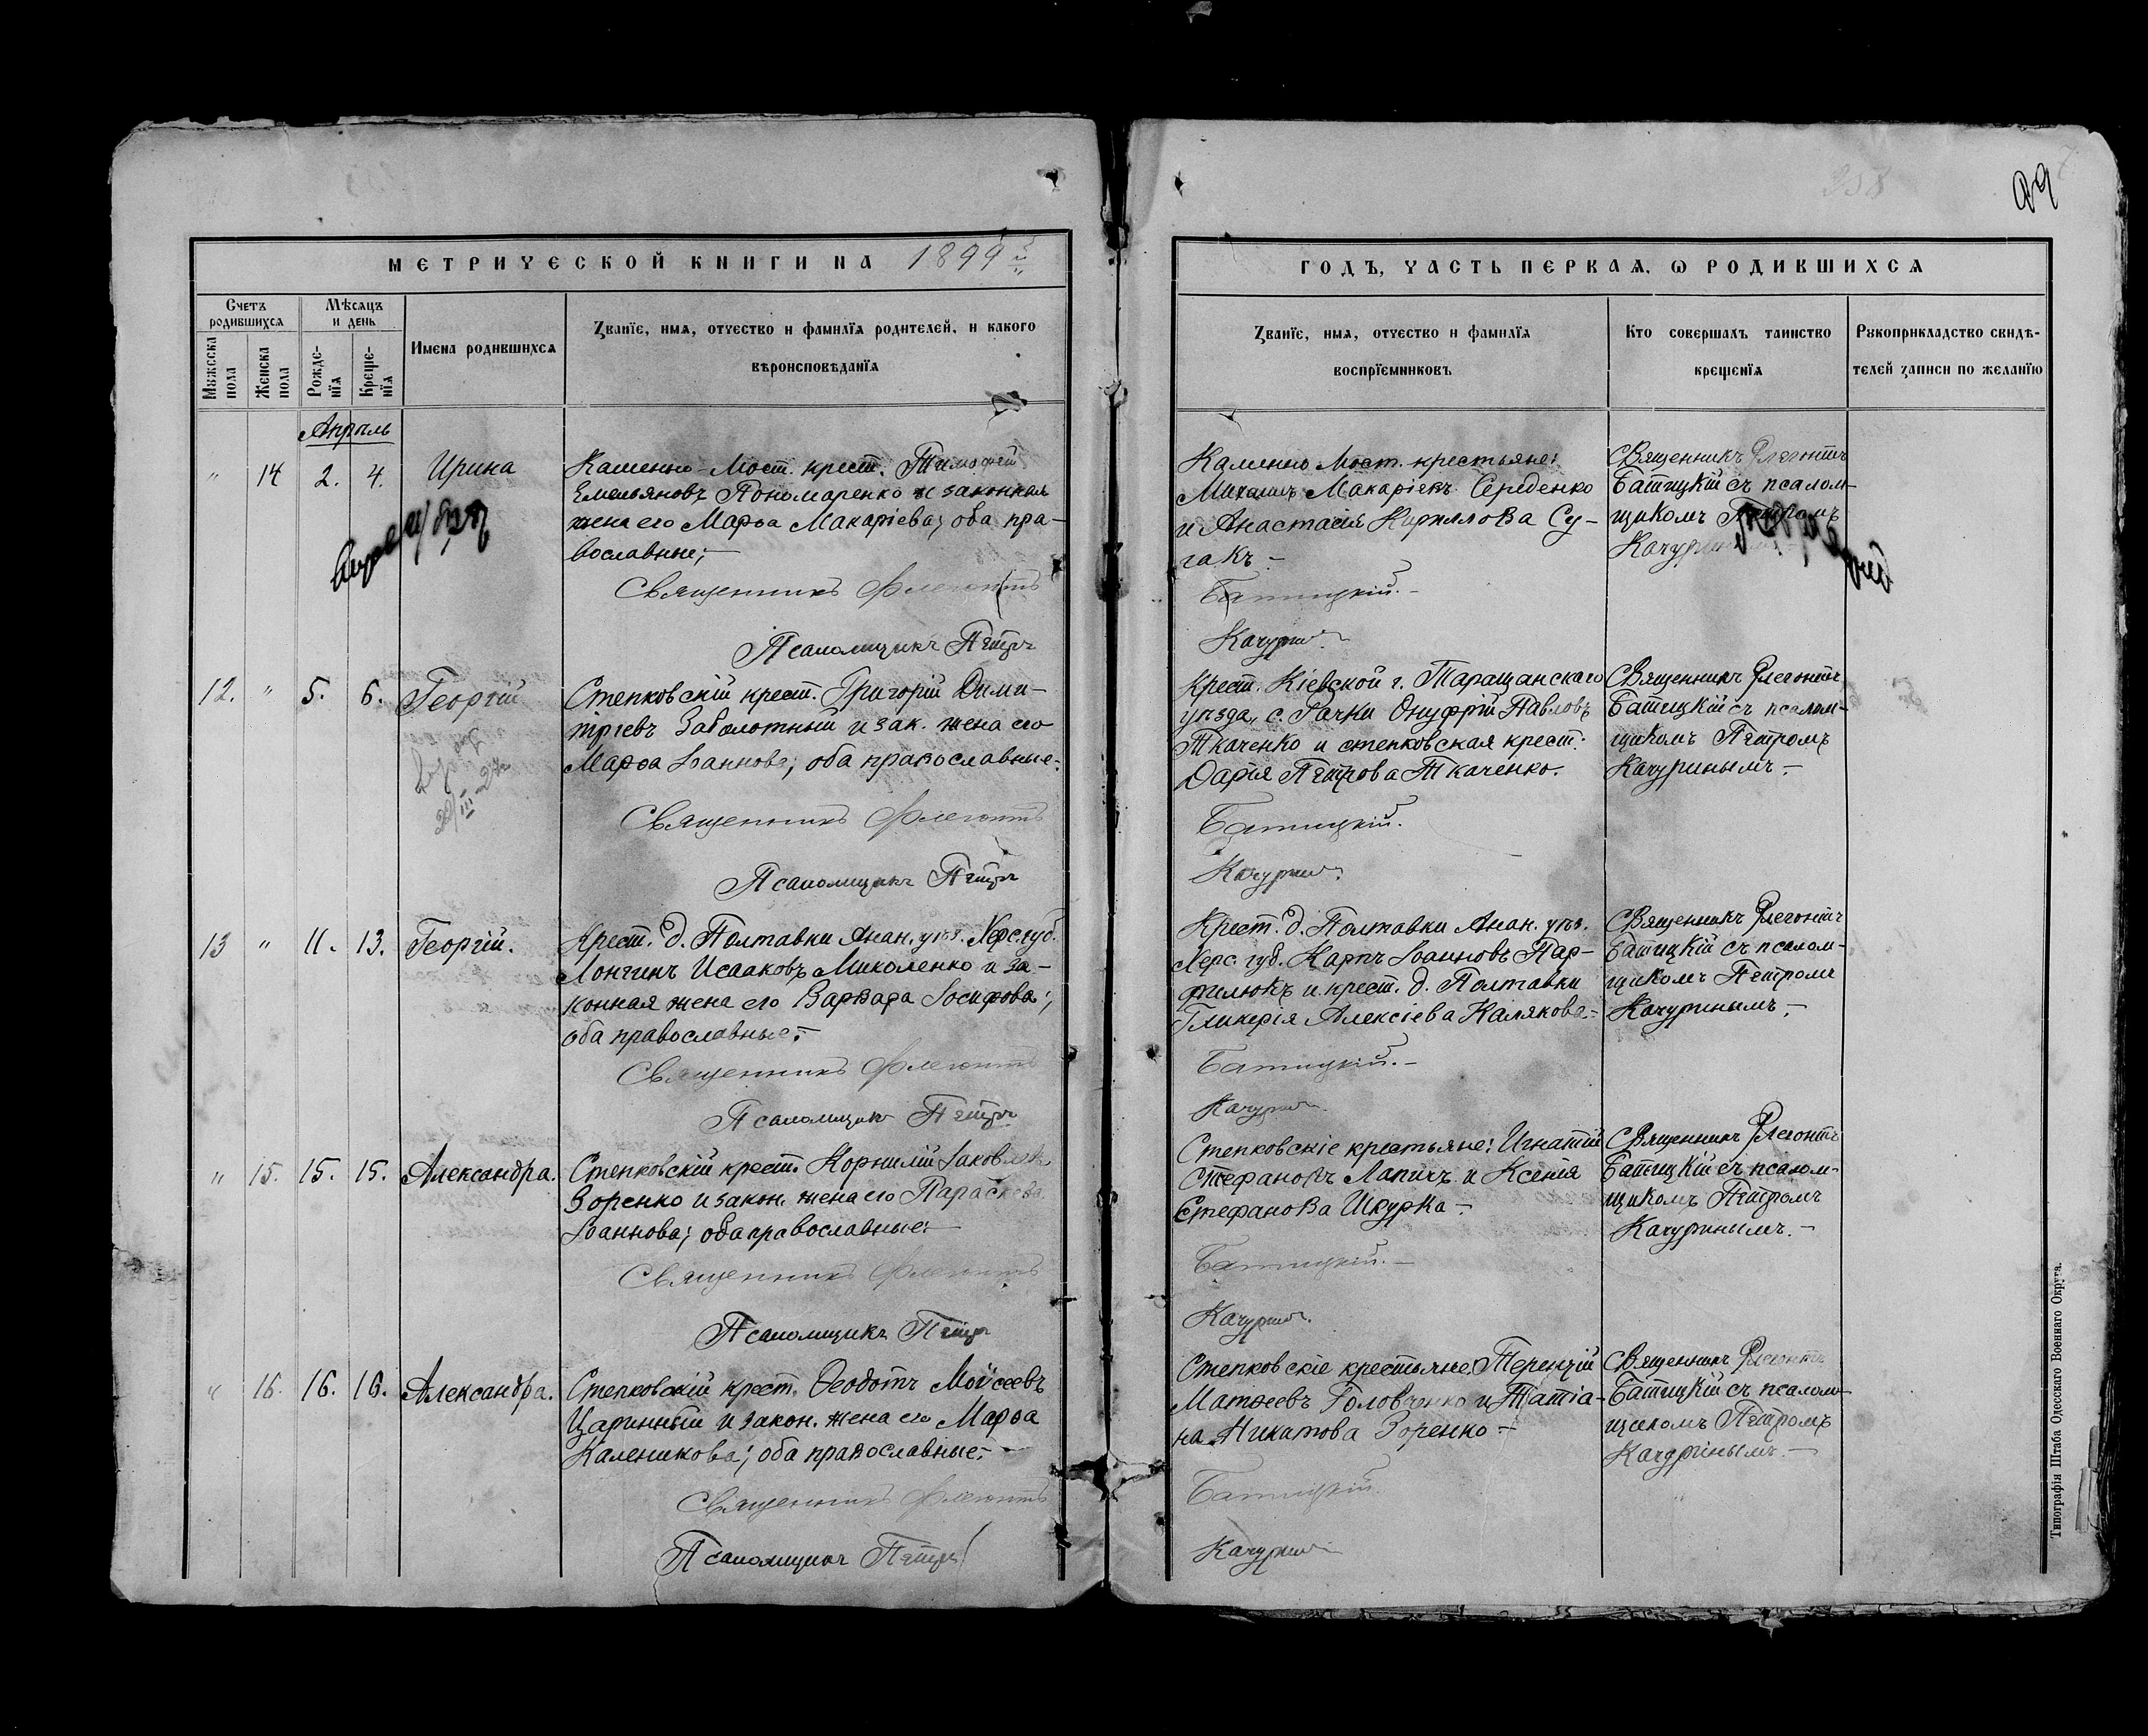 МЕТРИЧЕСКОЙ КНИГИ НА 1899й
Счетъ родившихся
Мѣсяцъ и день
Мужеска пола
Женска пола
Рожде-нія
Креще-нія
Имена родившихся
Званіе, имя, отчество и фамилія родителей, и какого
вѣроисповѣданія
Апрѣль
" 14 2. 4. Ирина
Каменно-Мост. крест. Тимофей
Емельяновъ Пономаренко и законная
жена его Марѳа Макаріева; оба пра-
вославные;-
Священникъ Флегонтъ
Псаломщикъ Петръ
12. " 5. 6. Георгій
Степковскій крест. Григорій Дими-
тріевъ Заболотный и зак. жена его
Марѳа Іоаннова; оба православные.
Священникъ Флегонтъ
Псаломщикъ Петръ
13 " 11. 13. Георгій.
Крест. д. Полтавки Анан. уѣз. Херс. губ.
Лонгинъ Исааковъ Миколенко и за-
конная жена его Варвара Іосифова;
оба православные:-
Священникъ Флегонтъ
Псаломщикъ Петръ
" 15. 15. 15. Александра.
Степковскій крест. Корнилій Іаковлевъ
Зоренко и закон. жена его Параскева
Іоаннова; оба православные:-
Священникъ Флегонтъ
Псаломщикъ Петръ
" 16. 16. 16. Александра.
Степковскій крест. Ѳеодотъ Мойсеевъ
Царинный и закон. жена его Марѳа
Каленикова; оба православные:-
Священникъ Флегонтъ
Псаломщикъ Петръ
99
258
ГОДЪ, ЧАСТЬ ПЕРВАЯ, Ѡ РОДИВШИХСЯ
Званіе, имя, отчество и фамилія
воспріемниковъ
Кто совершалъ таинство
крещенія
Рукоприкладство свидѣ-
телей записи по желанію
Каменно Мост. крестьяне:
Михаилъ Макаріевъ Середенко
и Анастасія Кириллова Су-
гакъ-
Священникъ Флегонтъ
Батицкій съ псалом-
щикомъ Петромъ
Батицкій.-
Качуринъ
Крест. Кіевской г. Таращанскаго
уѣзда, с. Рачки Онуфрій Павловъ
Ткаченко и степковская крест.
Дарія Петрова Ткаченко.
Священникъ Флегонтъ
Батицкій съ псалом-
щикомъ Петромъ
Качуринымъ.-
Батицкій.
Качуринъ.
Крест. д. Полтавки Анан. уѣз.
Херс. губ. Карпъ Іоанновъ Пар-
филюкъ и крест. д. Полтавки
Гликерія Алексіева Калякова-
Священникъ Флегонтъ
Батицкій съ псалом-
щикомъ Петромъ
Качуринымъ.-
Батицкій.-
Качуринъ
Степковскіе крестьяне: Игнатій
Стефановъ Лапихъ и Ксенія
Стефанова Шкурка-
Священникъ Флегонтъ
Батицкій съ псалом-
щикомъ Петромъ
Качуринымъ.-
Батицкій.-
Качуринъ.
Степковскіе крестьяне: Терентій
Матѳеевъ Головченко и Татіа-
на Никитова Зоренко-
Священникъ Флегонтъ
Батицкій съ псалом-
щикомъ Петромъ
Качуринымъ.-
Батицкій.
Качуринъ
Типографія Штаба Одесскаго Военнаго Округа.